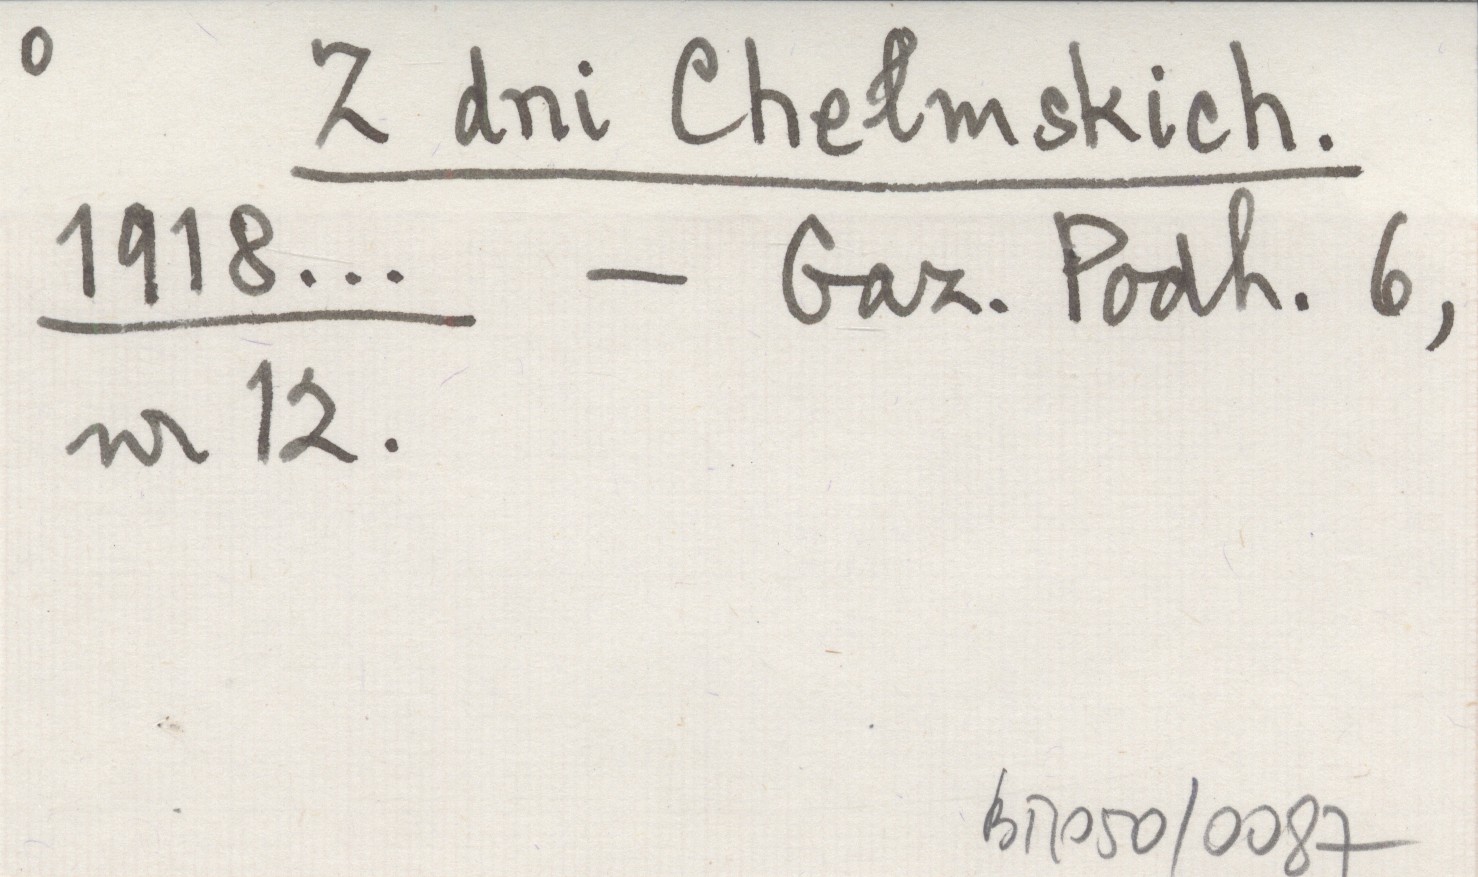 o
Z dni Chełmskich.
1918... — Gaz. Podh. 6,
nr 12.
/0087